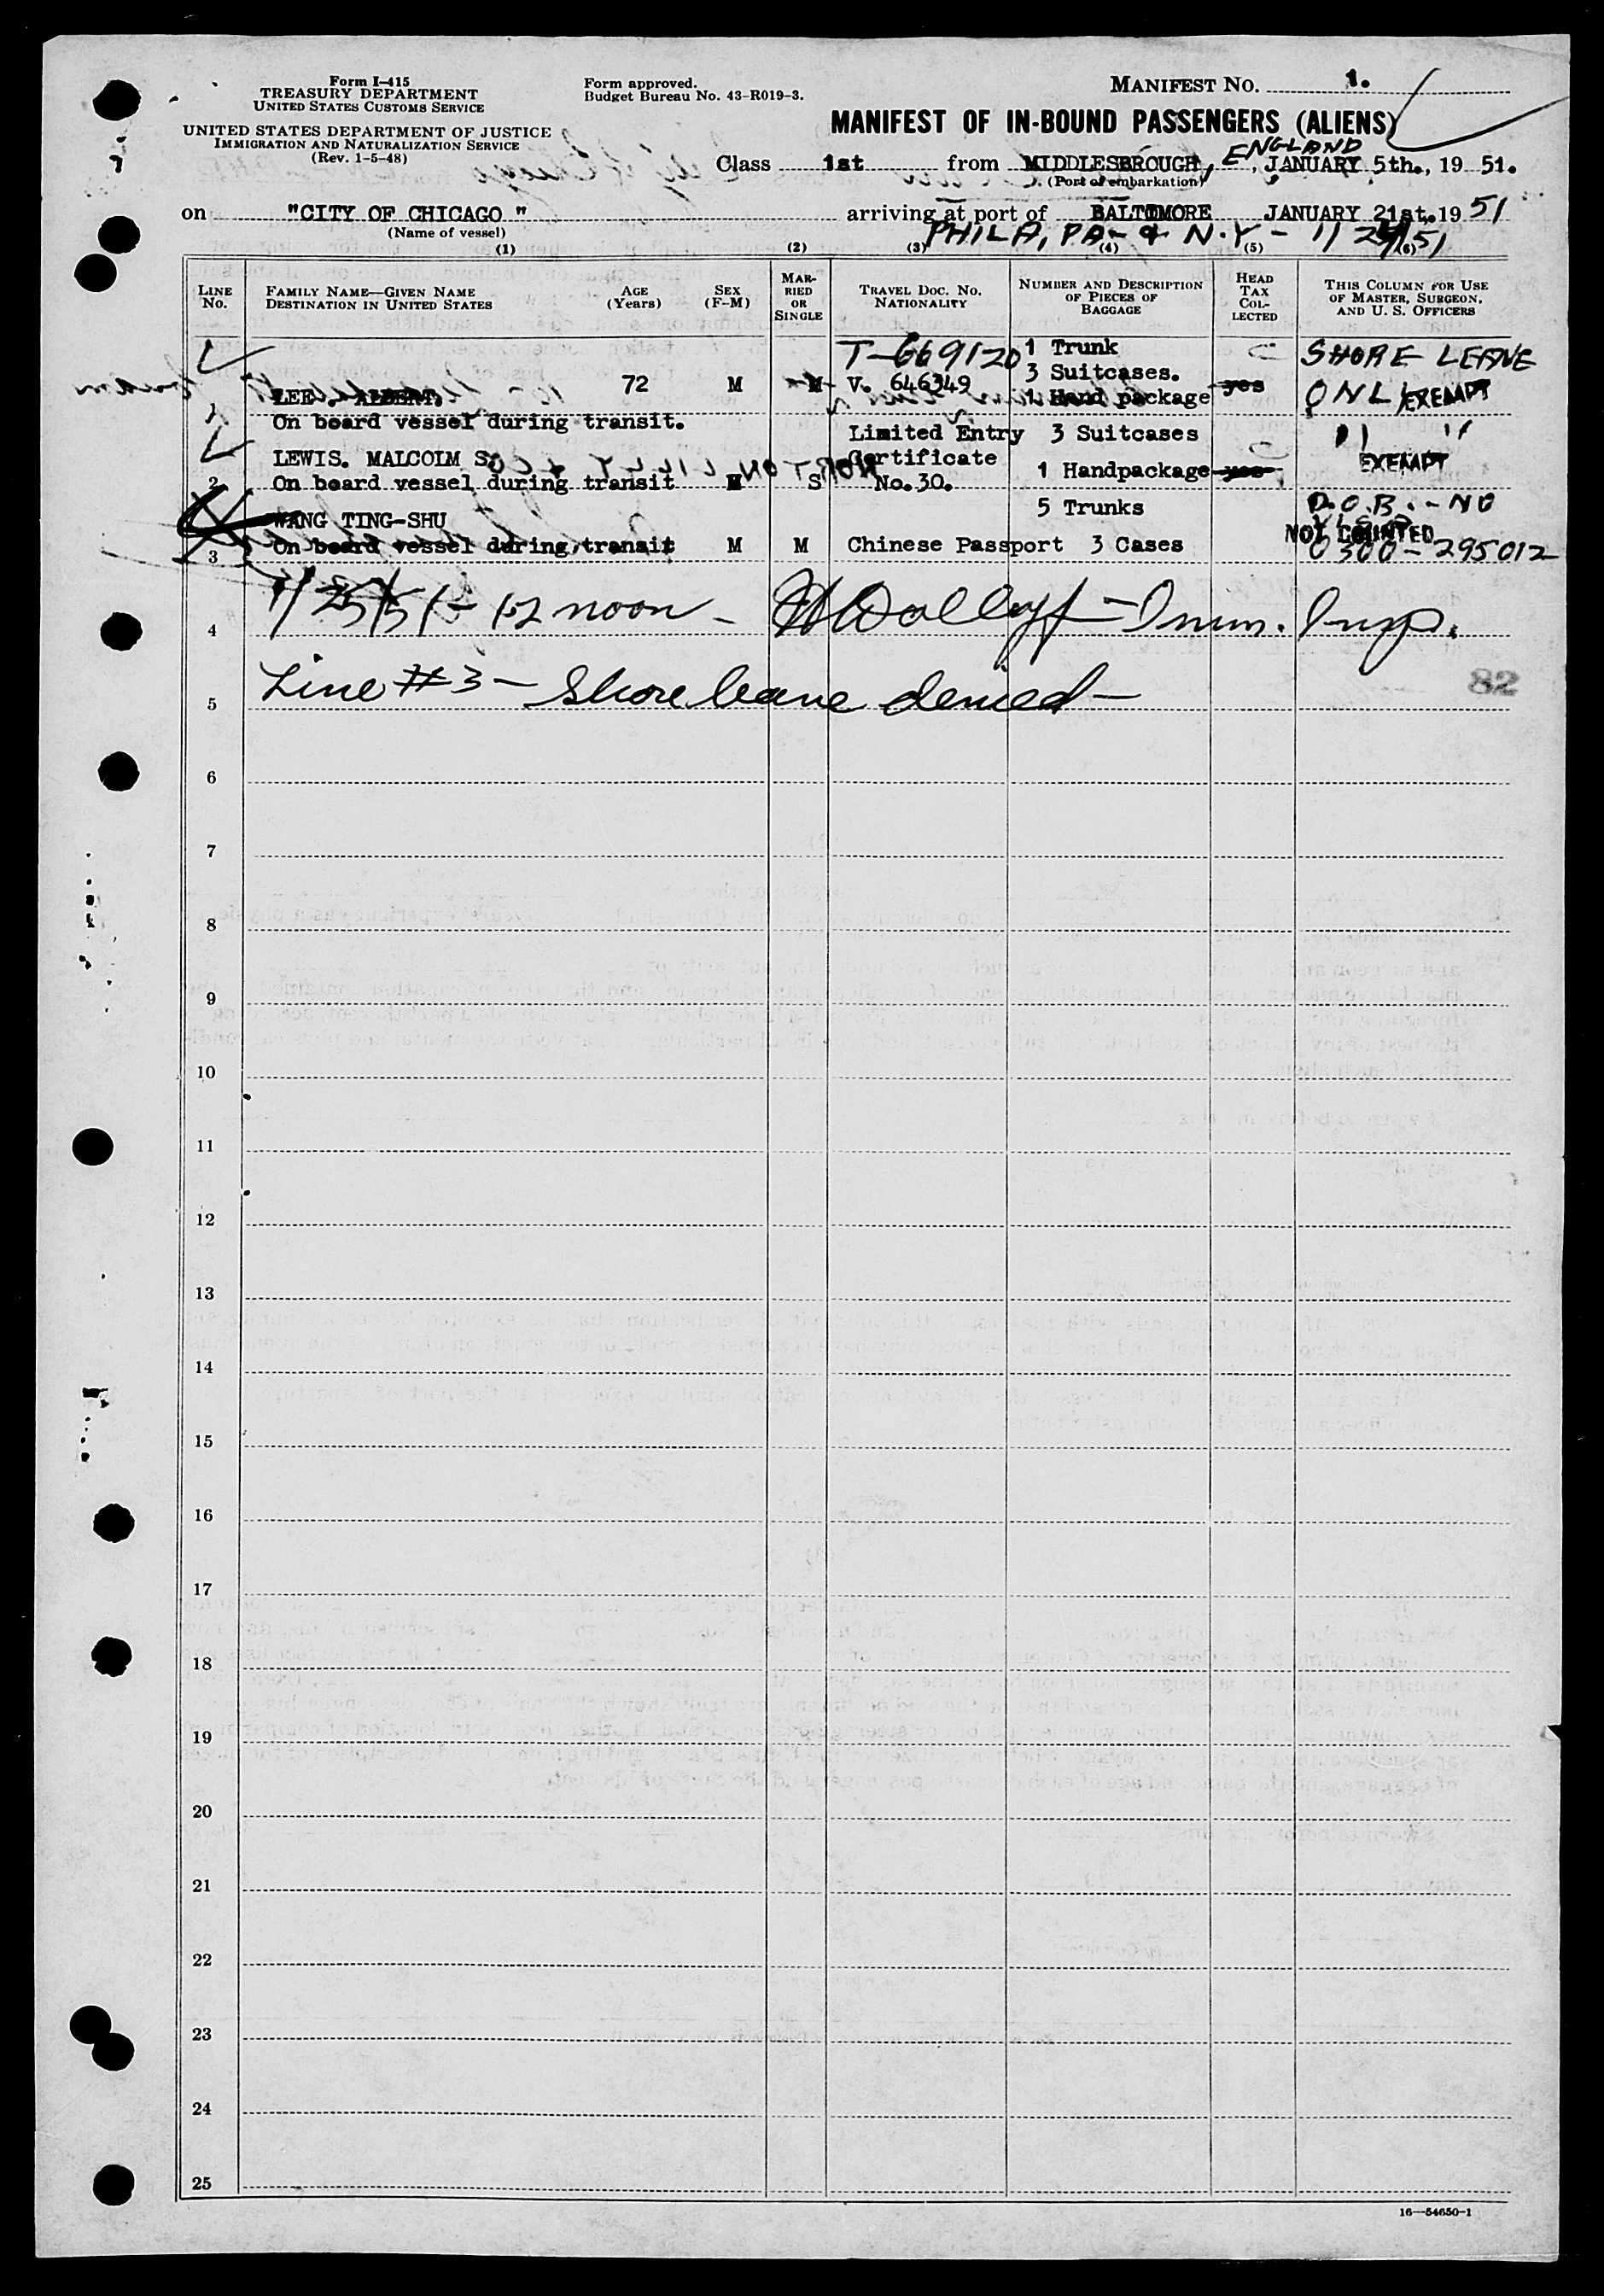 Form I-415
TREASURY DEPARTMENT
UNITED STATES CUSTOMS SERVICE
UNITED STATES DEPARTMENT OF JUSTICE
IMMIGRATION AND NATURALIZATION SERVICE
(Rev. 1-5-48)
Form approved.
Budget Bureau No. 43-R019-3.
MANIFEST NO. 1.
MANIFEST OF IN-BOUND PASSENGERS (ALIENS)
Class 1st from MIDDLESBROUGH, ENGLAND, JANUARY 5th., 19 51.
(Port of embarkation)
on "CITY OF CHICAGO" arriving at port of BALTIMORE JANUARY 21st. 19 51
(Name of vessel)
PHILA, PA - & N.Y -
(1) (2) (3) (4) (5) (6)
LINE No.
FAMILY NAME—GIVEN NAME
DESTINATION IN UNITED STATES
AGE (Years)
SEX (F-M)
MARRIED OR SINGLE
TRAVEL DOC. NO. NATIONALITY
NUMBER AND DESCRIPTION OF PIECES OF BAGGAGE
HEAD TAX COLLECTED
THIS COLUMN FOR USE OF MASTER, SURGEON, AND U. S. OFFICERS
T-669120 1 Trunk SHORE LEAVE
3 Suitcases.
LEE. ALBERT. 72 M M V. 646349 1 Hand package yes ONLY EXEMPT
1 On board vessel during transit.
Limited Entry 3 Suitcases " "
LEWIS. MALCOLM S. Certificate EXEMPT
2 On board vessel during transit M S No.30. 1 Handpackage yes
WANG TING-SHU 5 Trunks
NOT COUNTED
3 On board vessel during transit M M Chinese Passport 3 Cases 0300-295012
4 1/25/51 - 12 noon - Imm. Insp.
5 Line #3 - Shore leave denied -
82
6
7
8
9
10
11
12
13
14
15
16
17
18
19
20
21
22
23
24
25
16—54650-1